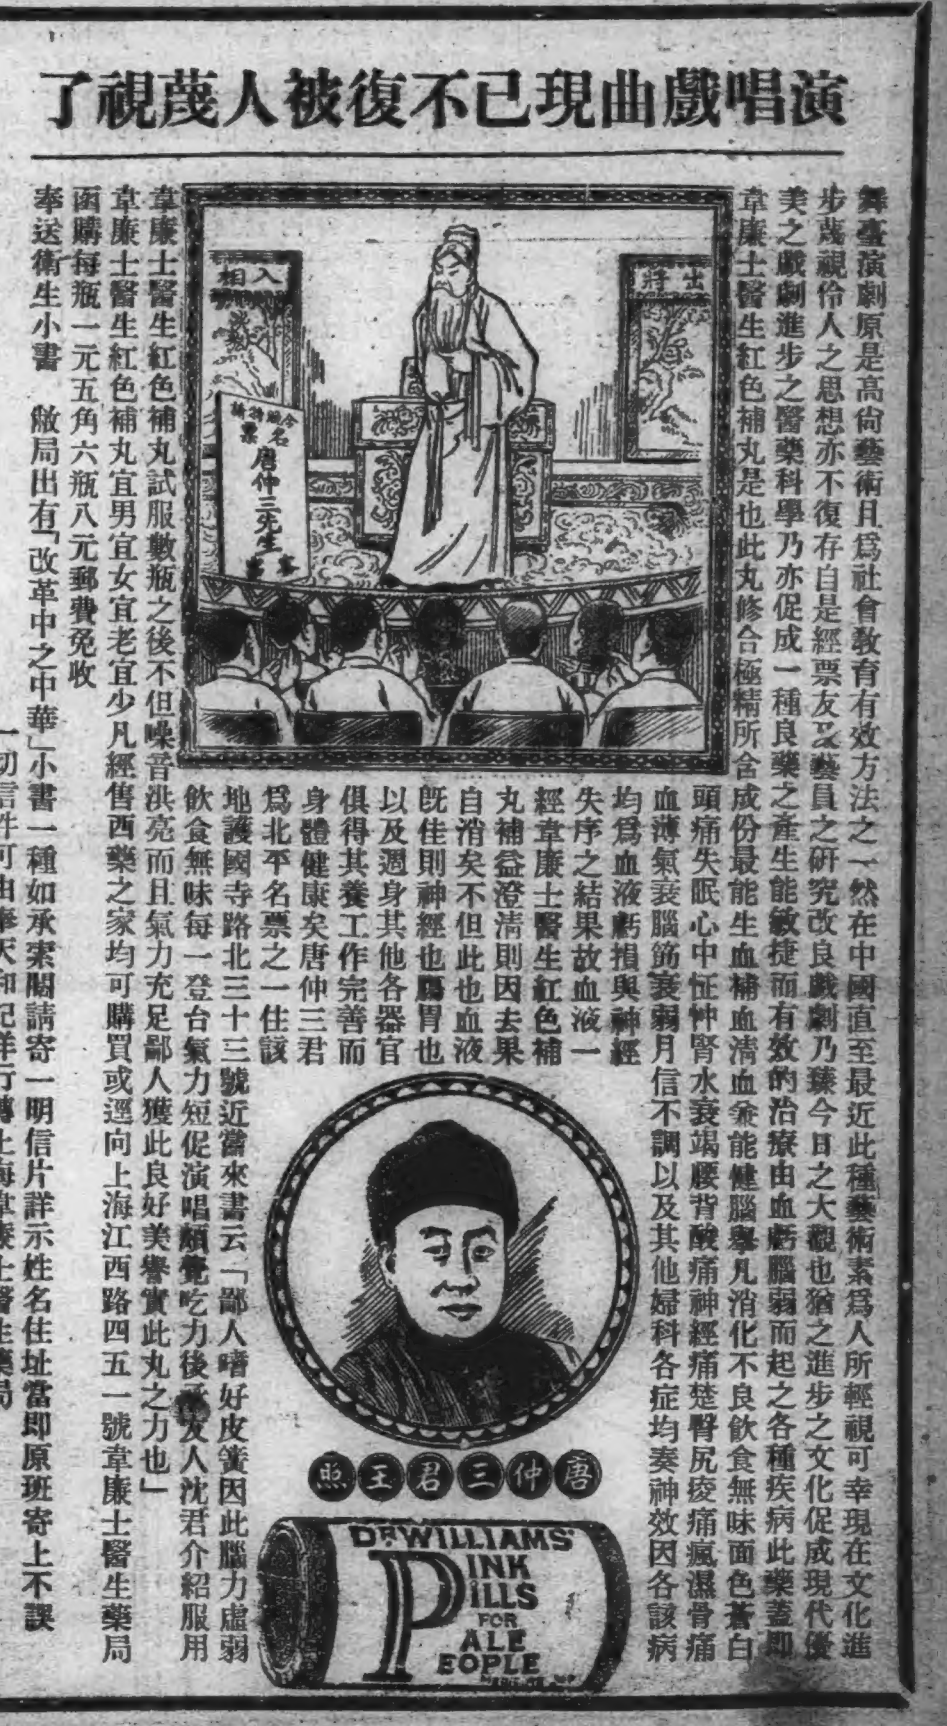 演唱戲曲現已不復被人蔑視了
舞臺演劇原是高尚藝術且爲社會教育有效方法之一然在中國直至最近此種藝術素爲人所輕視可幸現在文化進
步蔑視伶人之思想亦不復存自是經票友及藝員之研究改良戲劇乃臻今日之大觀也猶之進步之文化促成現代優
美之戲劇進步之醫藥科學乃亦促成一種良藥之產生能敏捷而有效的治療由血虧腦弱而起之各種疾病此藥蓋即
韋廉士醫生紅色補丸是也此丸修合極精所含成份最能生血補血清血兼能健腦舉凡消化不良飲食無味面色蒼白
頭痛失眠心中怔忡腎水衰竭腰背酸痛神經痛楚臀尻痠痛瘋濕骨痛
血薄氣衰腦筋衰弱月信不調以及其他婦科各症均奏神效因各該病
均爲血液虧損與神經
失序之結果故血液一
經韋廉士醫生紅色補
丸補益澄清則因去果
自消矣不但此也血液
旣佳則神經也腸胃也
以及週身其他各器官
俱得其養工作完善而
身體健康矣唐仲三君
爲北平名票之一住該
地護國寺路北三十三號近嘗來書云「鄙人嗜好皮簧因此腦力虛弱
飲食無味每一登台氣力短促演唱頗覺吃力後承友人沈君介紹服用
韋廉士醫生紅色補丸試服數瓶之後不但嗓音洪亮而且氣力充足鄙人獲此良好美譽實此丸之力也」
韋廉士醫生紅色補丸宜男宜女宜老宜少凡經售西藥之家均可購買或逕向上海江西路四五一號韋廉士醫生藥局
函購每瓶一元五角六瓶八元郵費免收
奉送衛生小書 敝局出有「改革中之中華」小書一種如承索閱請寄一明信片詳示姓名住址當即原班寄上不誤
一切信件可由奉天和記洋行轉上海韋廉士醫生藥局
出將
入相
名票
唐仲三先生
唐仲三君玉照
DR. WILLIAMS'
PINK
PILLS
FOR
PALE
PEOPLE